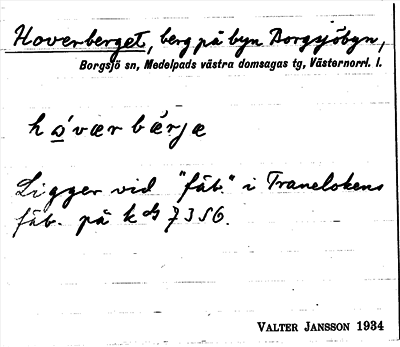 Hoverberget, berg på byn Borgsjöbyn,
Borgsjö sn, Medelpads västra domsagas tg, Västernorrl. l.
hǫ́vær bǽrjæ
Ligger vid "fäb." i Tranelokens
fäb. på kds 7356.
VALTER JANSSON 1934